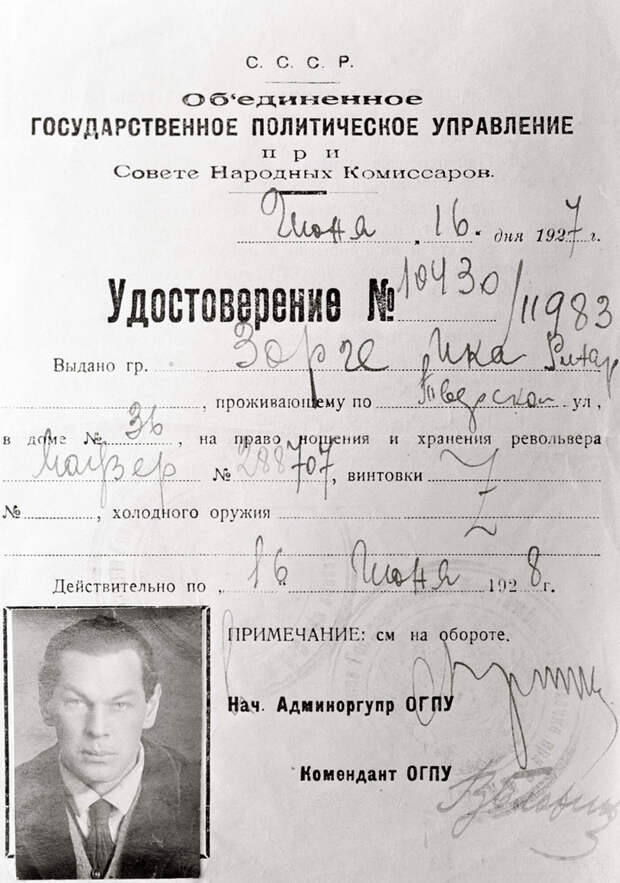 С. С. С. Р.
Об‘единенное
ГОСУДАРСТВЕННОЕ ПОЛИТИЧЕСКОЕ УПРАВЛЕНИЕ
при
Совете Народных Комиссаров.
Июня „16“ дня 1927 г.
Удостоверение № 10430/11983
Выдано гр. Зорге Ика Рихар
, проживающему по Тверской ул.,
в доме № 36, на право ношения и хранения револьвера
Маузер № 288707, винтовки
№ , холодного оружия
Действительно по „16“ Июня 1928 г.
ПРИМЕЧАНИЕ: см на обороте.
Нач. Админоргупр ОГПУ
Комендант ОГПУ